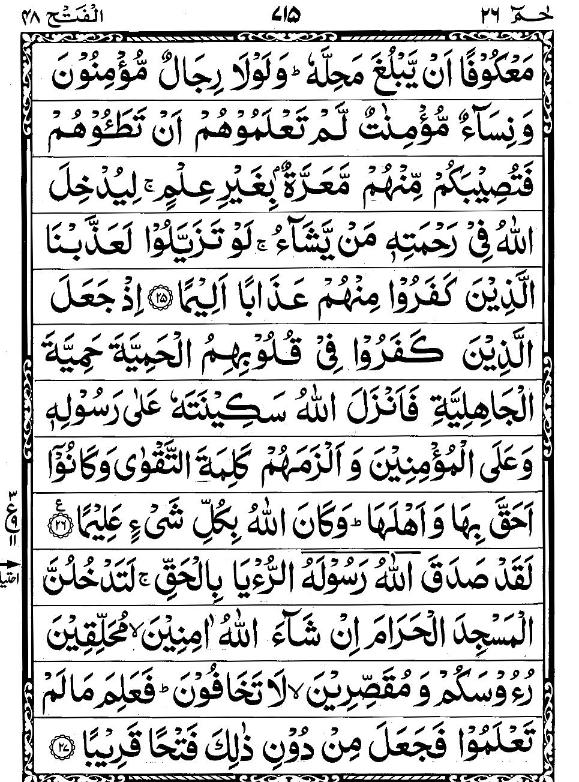 حٰمٓ ٢٦ ٧١٥ الْفَتْح ٤٨
مَعْكُوْفًا اَنْ يَّبْلُغَ مَحِلَّهٗ ؕ وَلَوْلَا رِجَالٌ مُّؤْمِنُوْنَ
وَ نِسَآءٌ مُّؤْمِنٰتٌ لَّمْ تَعْلَمُوْهُمْ اَنْ تَطَـُٔوْهُمْ
فَتُصِيْبَكُمْ مِّنْهُمْ مَّعَرَّةٌۢ بِغَيْرِ عِلْمٍ ۚ لِيُدْخِلَ
اللّٰهُ فِيْ رَحْمَتِهٖ مَنْ يَّشَآءُ ۚ لَوْ تَزَيَّلُوْا لَعَذَّبْنَا
الَّذِيْنَ كَفَرُوْا مِنْهُمْ عَذَابًا اَلِيْمًا ﴿٢٥﴾ اِذْ جَعَلَ
الَّذِيْنَ كَفَرُوْا فِيْ قُلُوْبِهِمُ الْحَمِيَّةَ حَمِيَّةَ
الْجَاهِلِيَّةِ فَاَنْزَلَ اللّٰهُ سَكِيْنَتَهٗ عَلٰى رَسُوْلِهٖ
وَ عَلَى الْمُؤْمِنِيْنَ وَ اَلْزَمَهُمْ كَلِمَةَ التَّقْوٰى وَ كَانُوْۤا
اَحَقَّ بِهَا وَ اَهْلَهَا ؕ وَ كَانَ اللّٰهُ بِكُلِّ شَيْءٍ عَلِيْمًا ﴿٢٦﴾ ع
٣
ع ٩
١١
لَقَدْ صَدَقَ اللّٰهُ رَسُوْلَهُ الرُّءْيَا بِالْحَقِّ ۚ لَتَدْخُلُنَّ
الْمَسْجِدَ الْحَرَامَ اِنْ شَآءَ اللّٰهُ اٰمِنِيْنَ ۙ مُحَلِّقِيْنَ
رُءُوْسَكُمْ وَ مُقَصِّرِيْنَ ۙ لَا تَخَافُوْنَ ؕ فَعَلِمَ مَا لَمْ
تَعْلَمُوْا فَجَعَلَ مِنْ دُوْنِ ذٰلِكَ فَتْحًا قَرِيْبًا ﴿٢٧﴾